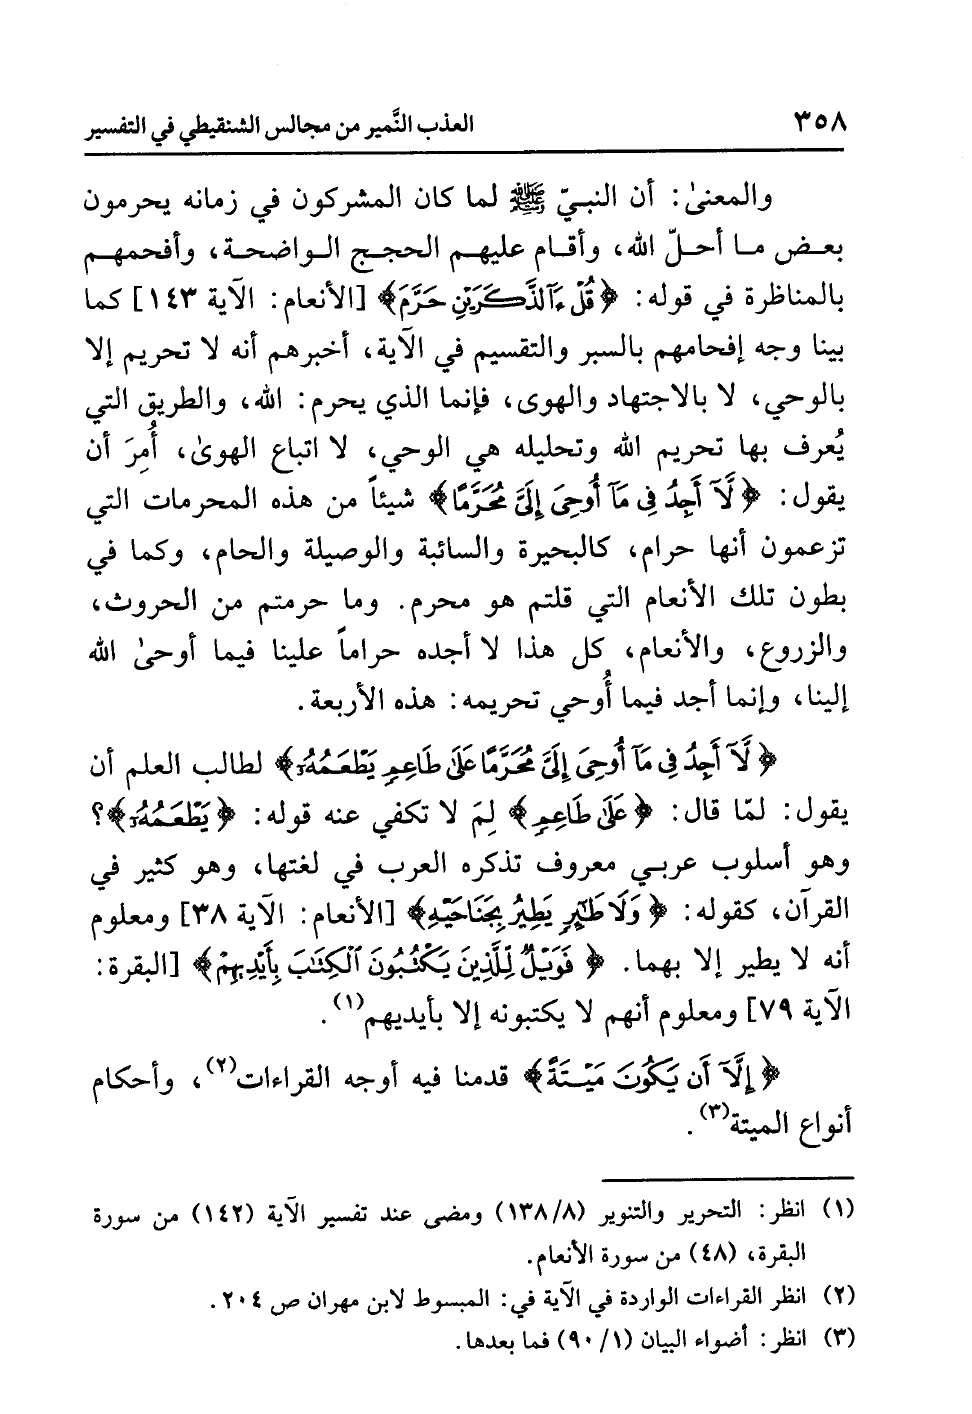 ٣٥٨ العذب النَّمير من مجالس الشنقيطي في التفسير
والمعنىٰ: أن النبيّ ﷺ لما كان المشركون في زمانه يحرمون
بعض ما أحلّ الله، وأقام عليهم الحجج الواضحة، وأفحمهم
بالمناظرة في قوله: ﴿قُلْ ءَآلذَّكَرَيْنِ حَرَّمَ﴾ [الأنعام: الآية ١٤٣] كما
بينا وجه إفحامهم بالسبر والتقسيم في الآية، أخبرهم أنه لا تحريم إلا
بالوحي، لا بالاجتهاد والهوى، فإنما الذي يحرم: الله، والطريق التي
يُعرف بها تحريم الله وتحليله هي الوحي، لا اتباع الهوىٰ، أُمِرَ أن
يقول: ﴿لَّآ أَجِدُ فِى مَآ أُوحِىَ إِلَىَّ مُحَرَّمًا﴾ شيئاً من هذه المحرمات التي
تزعمون أنها حرام، كالبحيرة والسائبة والوصيلة والحام، وكما في
بطون تلك الأنعام التي قلتم هو محرم. وما حرمتم من الحروث،
والزروع، والأنعام، كل هذا لا أجده حراماً علينا فيما أوحىٰ الله
إلينا، وإنما أجد فيما أُوحي تحريمه: هذه الأربعة.
﴿لَّآ أَجِدُ فِى مَآ أُوحِىَ إِلَىَّ مُحَرَّمًا عَلَىٰ طَاعِمٍ يَطْعَمُهُۥٓ﴾ لطالب العلم أن
يقول: لمّا قال: ﴿عَلَىٰ طَاعِمٍ﴾ لِمَ لا تكفي عنه قوله: ﴿يَطْعَمُهُۥٓ﴾؟
وهو أسلوب عربي معروف تذكره العرب في لغتها، وهو كثير في
القرآن، كقوله: ﴿وَلَا طَٰٓئِرٍ يَطِيرُ بِجَنَاحَيْهِ﴾ [الأنعام: الآية ٣٨] ومعلوم
أنه لا يطير إلا بهما. ﴿فَوَيْلٌ لِّلَّذِينَ يَكْتُبُونَ ٱلْكِتَٰبَ بِأَيْدِيهِمْ﴾ [البقرة:
الآية ٧٩] ومعلوم أنهم لا يكتبونه إلا بأيديهم(١).
﴿إِلَّآ أَن يَكُونَ مَيْتَةً﴾ قدمنا فيه أوجه القراءات(٢)، وأحكام
أنواع الميتة(٣).
(١) انظر: التحرير والتنوير (١٣٨/٨) ومضى عند تفسير الآية (١٤٢) من سورة
البقرة، (٤٨) من سورة الأنعام.
(٢) انظر القراءات الواردة في الآية في: المبسوط لابن مهران ص ٢٠٤.
(٣) انظر: أضواء البيان (٩٠/١) فما بعدها.